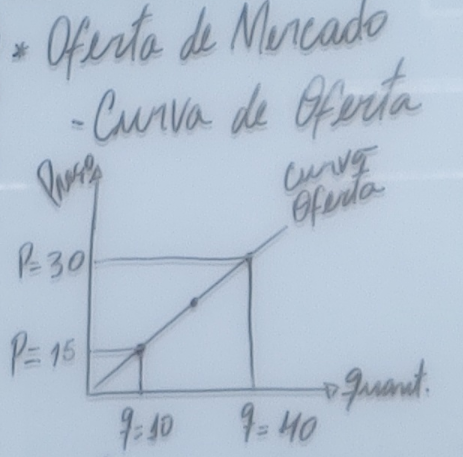 * Oferta de Mercado
- Curva de Oferta
Preço
Curva
Oferta
P=30
P=15
quant.
q=10 q=40